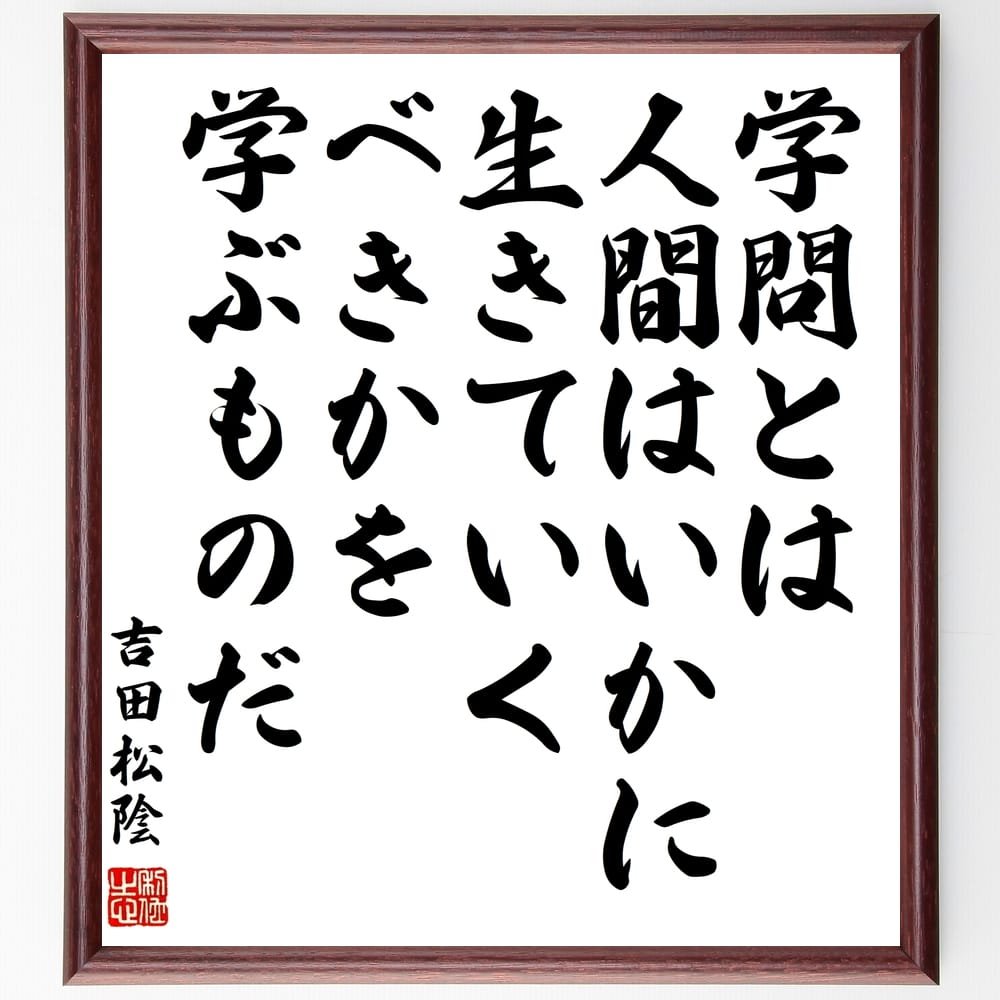 学問とは
人間はいかに
生きていく
べきかを
学ぶものだ
吉田松陰